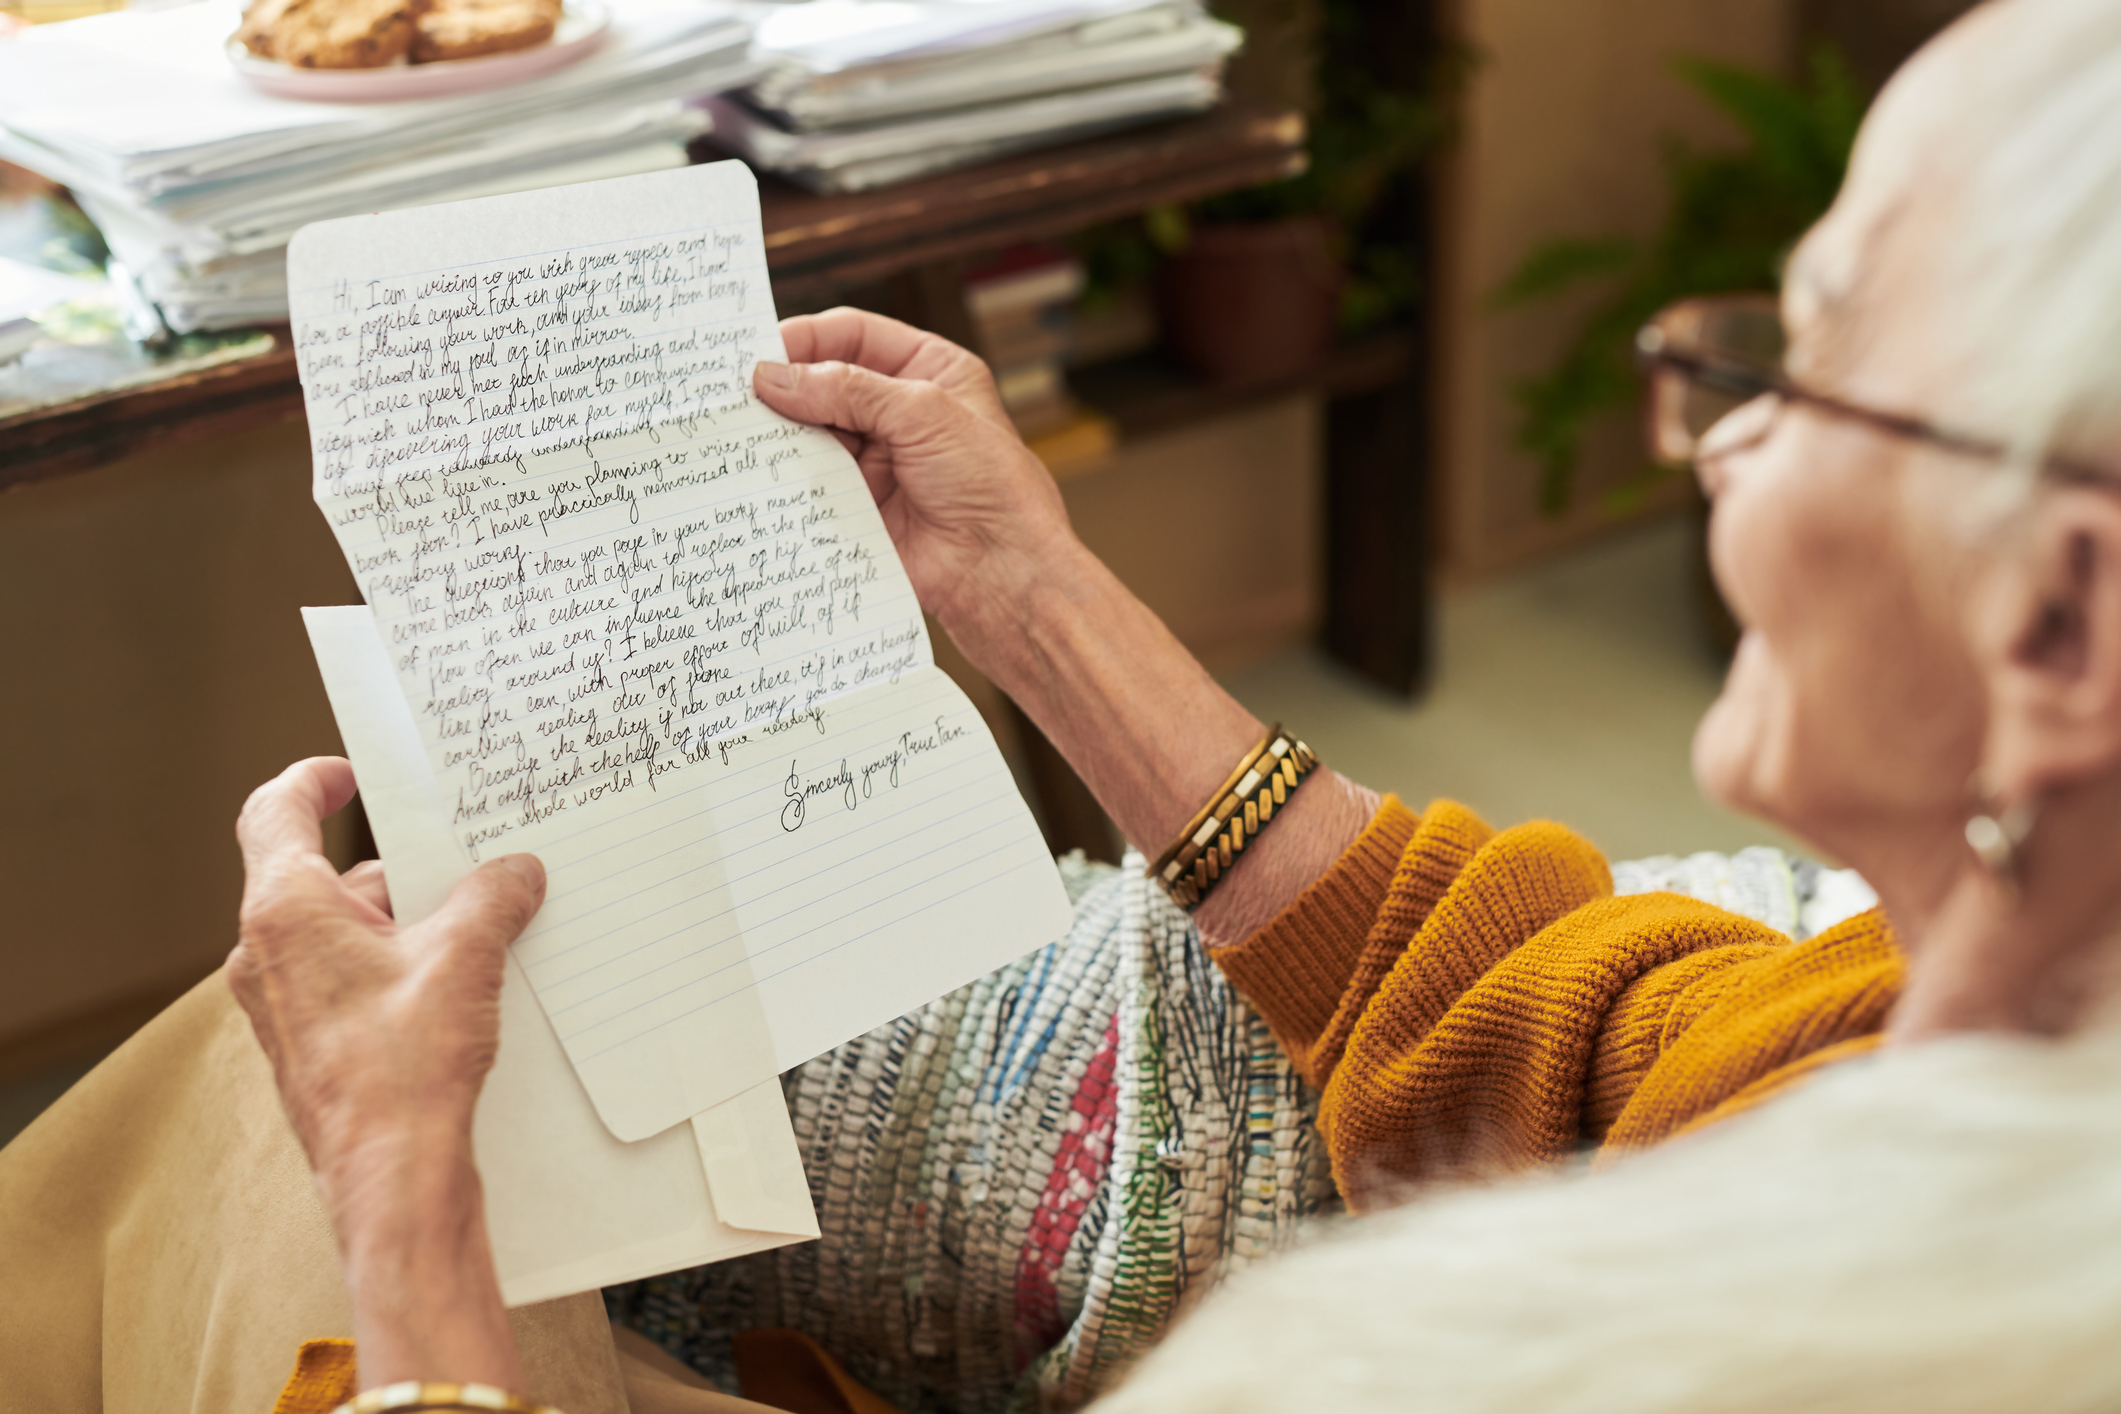 Hi, I am writing to you with great respect and hope
for a possible answer. For ten years of my life, I have
been following your work, and your ideas from books
are reflected in my soul as if in mirror.
I have never met such understanding and recipro
city with whom I had the honor to communicate, so
as discovering your work for myself, I took a
huge step towards understanding myself and
world we live in.
Please tell me, are you planning to write another
book soon? I have practically memorized all your
previous works.
The questions that you pose in your books make me
come back again and again to reflect on the place
of man in the culture and history of his time.
How often we can influence the appearance of the
reality around us? I believe that you and people
like you can, with proper effort of will, as if
carving reality out of stone.
Because the reality is not out there, it's in our heads
And only with the help of your books you do change
your whole world for all your readers.
Sincerly yours, True Fan